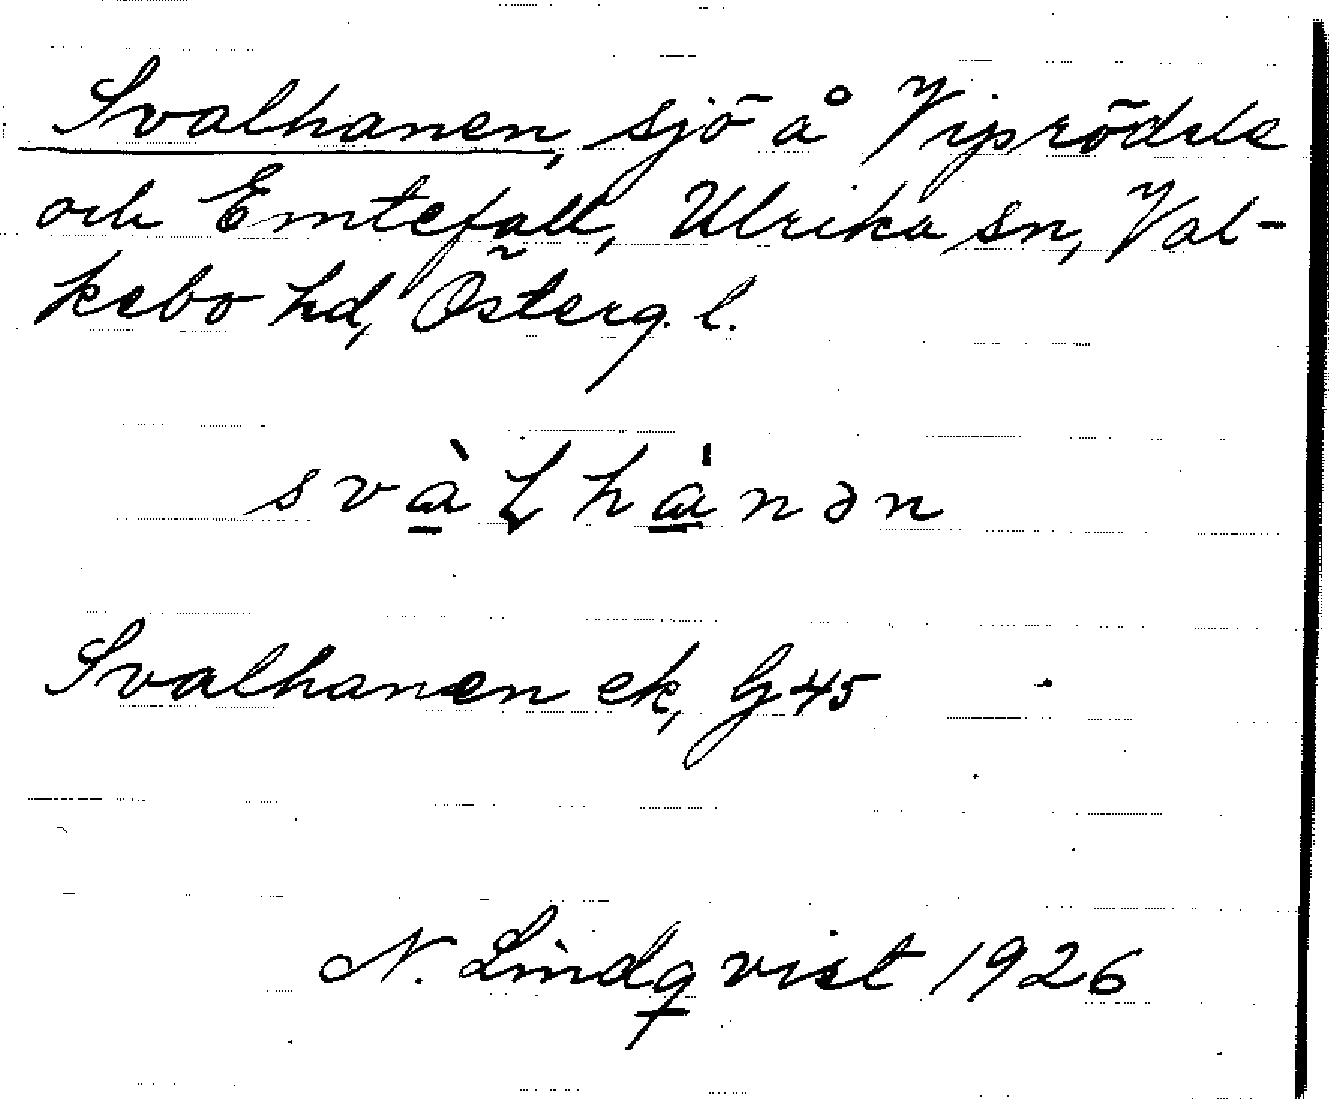 Svalhanen, sjö å Viprödde
och Emtefall, Ulrika sn, Val-
kebo hd, Österg. l.
svàlhánən
Svalhanen ek, G 45
N. Lindqvist 1926